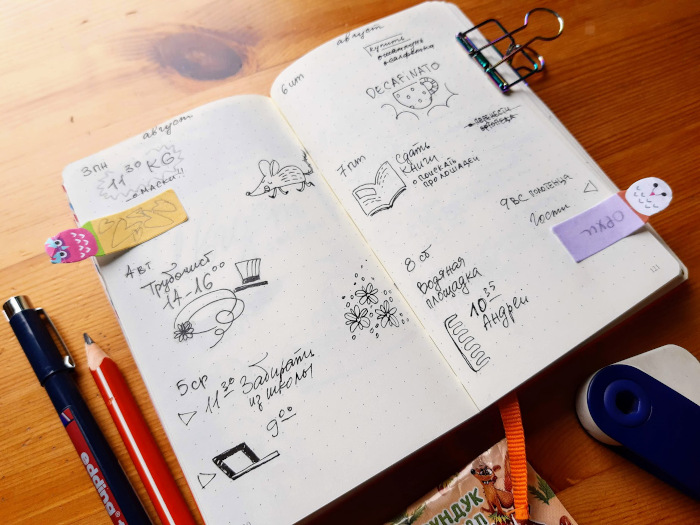 август
3 пн
11 30 KG
маски!
4 вт
Трубочист
14-16 00
5 ср
11 30 Забирать
из школы
9 00
август
6 чт
купить
DECAFINATO
7 пт
Сдать
книги
поискать
про лошадей
8 сб
водяная
площадка
10 35
Андрей
9 ВС полотенца
Гости
121
edding
УНДУК